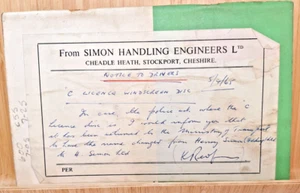 From SIMON HANDLING ENGINEERS LTD
CHEADLE HEATH, STOCKPORT, CHESHIRE.
NOTICE TO DRIVERS
5/9/65
"C" LICENCE WINDSCREEN DISC
In case the police ask where the "C"
licence disc is I would inform you that
it has been returned to the Ministry of Transport
to have the name changed from Henry Simon
to Simon Ltd
PER